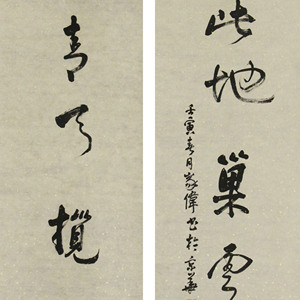 此地巢雲
壬寅春月家偉書於京華
青攬